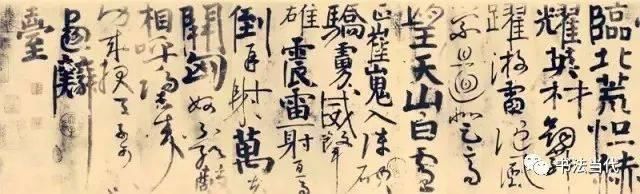 臨北荒烜赫
耀英材劍
躍游雷隨風
縈且迴登高
望天山白雲
正崔嵬入陣破
驕虜威聲
雄震雷一射百馬
倒再射萬夫
開匈奴不敢敵
相呼歸去來
功成報天子可
以畫麟
臺
书法当代